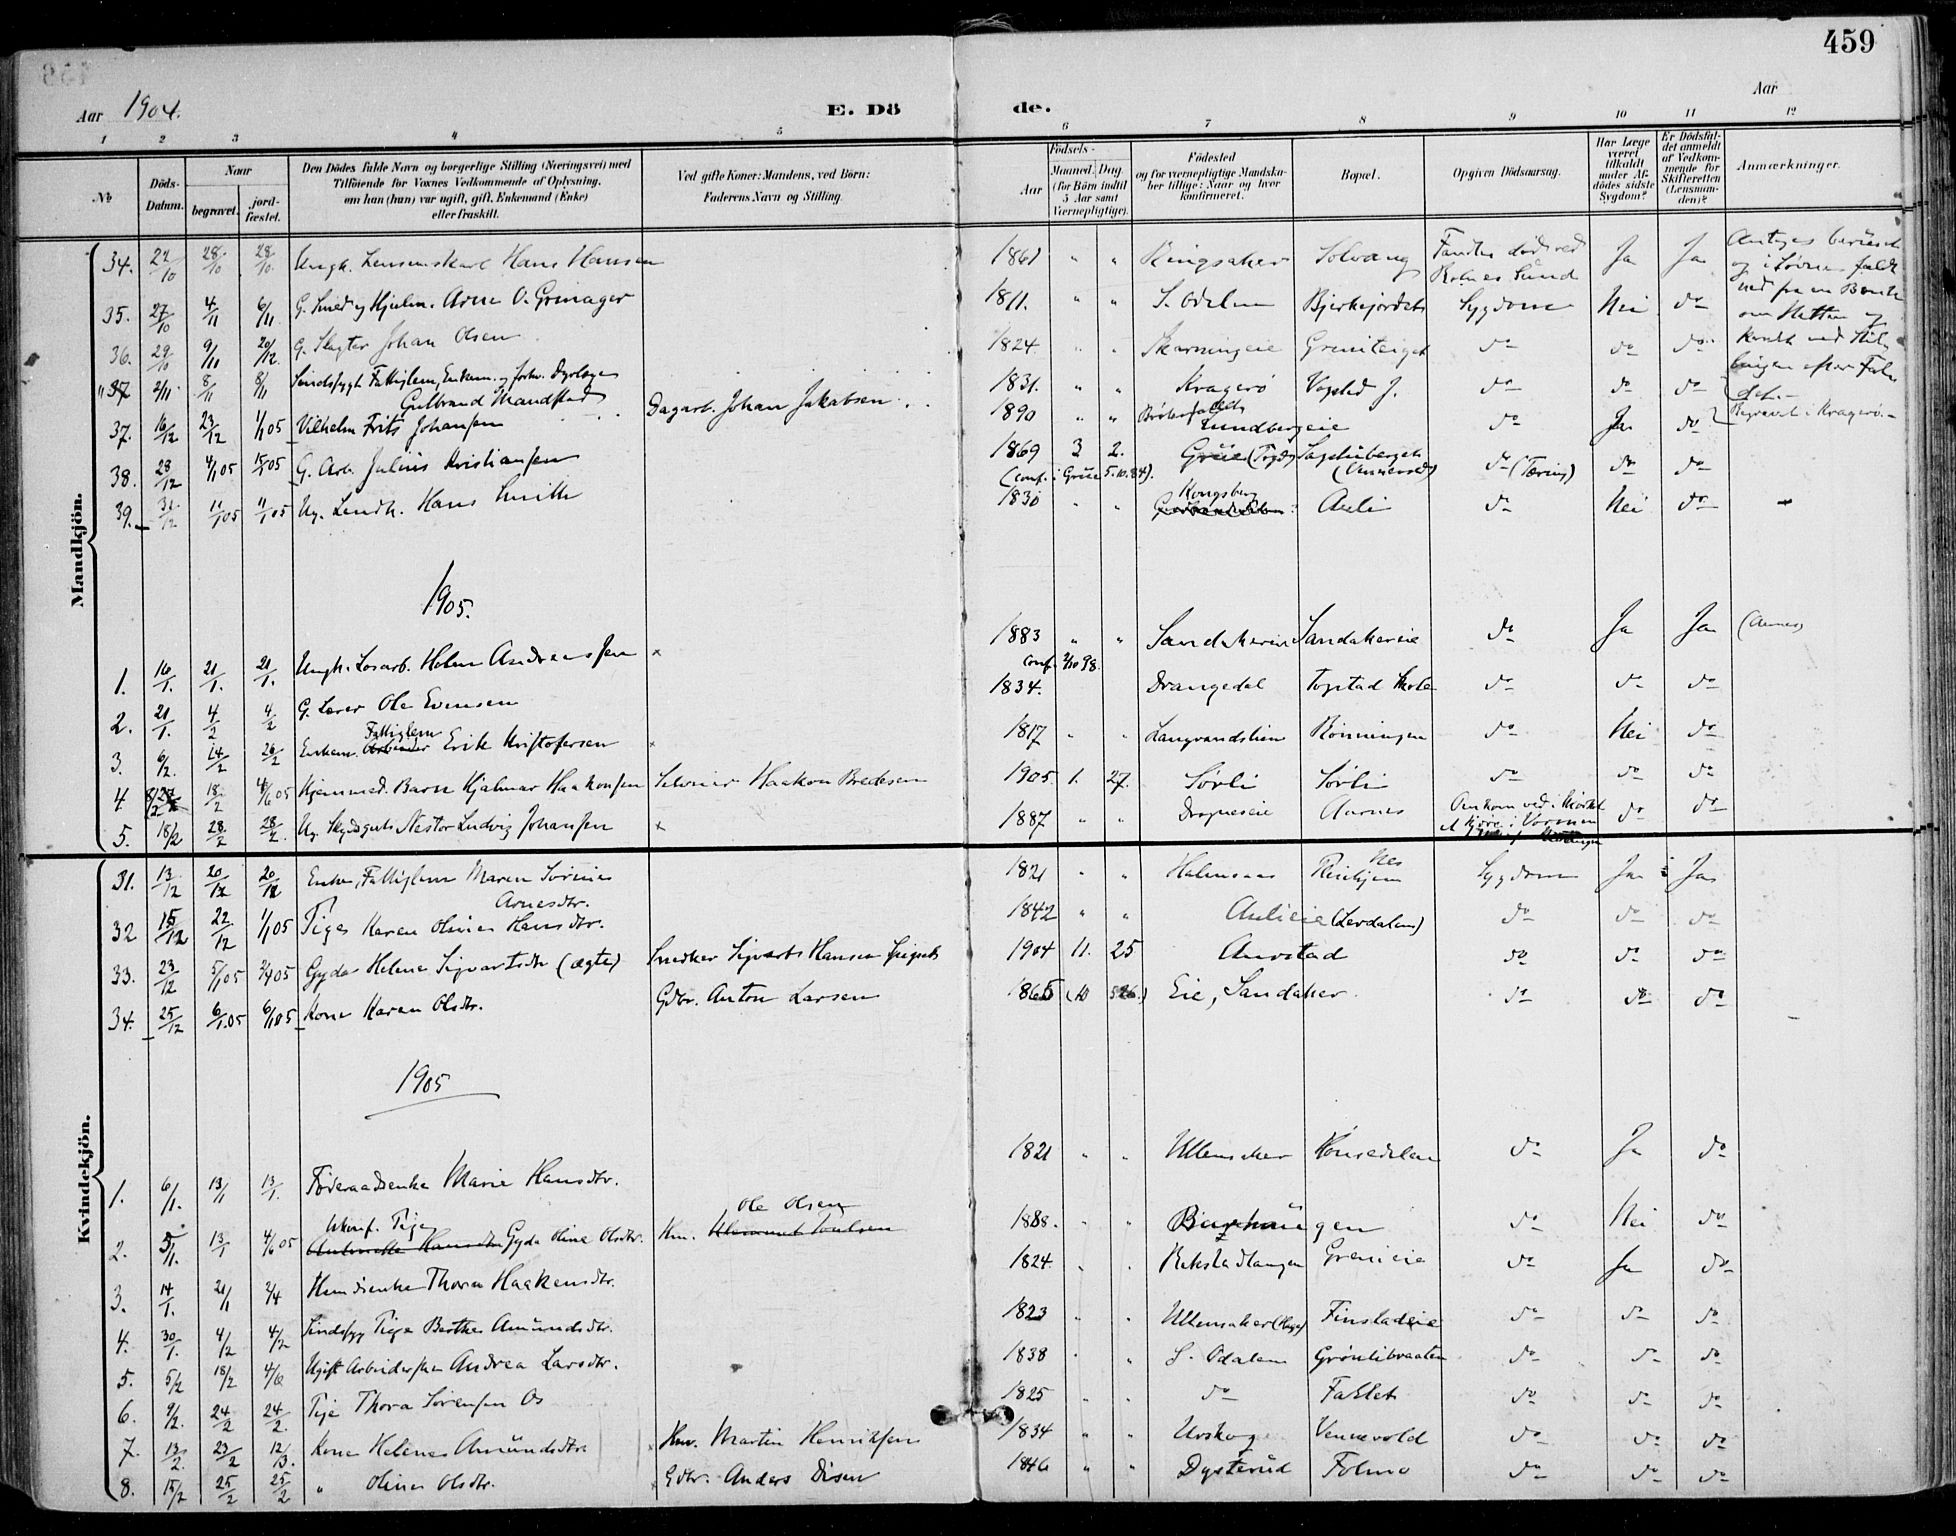 459
Aar 1904.
E. Dö
de.
Aar
1 2 3 4 5 6 7 8 9 10 11 12
No
Döds-Datum.
Naar
begravet.
jord-fæstet.
Den Dödes fulde Navn og borgerlige Stilling (Næringsvei) med
Tilföiende for Voxnes Vedkommende af Oplysning,
om han (hun) var ugift, gift, Enkemand (Enke)
eller fraskilt.
Ved gifte Koner: Mandens, ved Börn:
Faderens Navn og Stilling.
Födsels-
Aar
Maaned.
Dag
(for Börn indtil
5 Aar samt
Værnepligtige).
Födested
og for værnepligtige Mandska-
ber tillige: Naar og hvor
konfirmeret.
Bopæl.
Opgiven Dödsaarsag.
Har Læge
været
tilkaldt
under Af-
dödes sidste
Sygdom?
Er Dödsfal-
det anmeldt
af Vedkom-
mende for
Skifteretten
(Lensman-
den)?
Anmærkninger.
Mandkjön.
34. 22/10 28/10 28/10 Ungk. Lensmskarl Hans Hansen 1861 " " Ringsaker Solvang Fandtes død ved Ja Ja
35. 27/10 4/11 6/11 G. Smed og Hjulm. Arne O. Grinager 1811. " " S. Odalen Bjerkefjordet Sygdom Nei do
36. 29/10 9/11 20/12. G. Slagter Johan Olsen 1824. " " Skarningeie Grenteiget do do do
"37 2/11 8/11 8/11 Sindssygt Fattiglem, Enkem. og forhv. Dyrlæge
Gulbrand Mandstad 1831. " " Kragerø Vogstad J. do do do
Begravet i Kragerø.-
37. 16/12 23/12 1/1 05 Vilhelm Frits Johansen Dagarb. Johan Jakobsen 1890 " " Lundbergeie do Ja do
38. 28/12 4/1 05 15/1 05 G. Arb. Julius Kristiansen 1869 3 2. Grue do (Tæring) do do
(Conf. i Grue 5.10.84).
39. 31/12 11/1 05 11/1 05 Ug. Hans Smith 1830 " " Kongsberg Auli do Nei do
1905.
1. 16/1. 21/1. 21/1. Ungk. Losarb. Holm Andreassen × 1883 " " Sandakereie Sandakereie do Ja Ja (Aarnes)
conf. 2/10 98.
2. 21/1. 4/2 4/2 G. Lærer Ole Evensen 1834. Drangedal Togstad Skole do do do
3. 6/2. 14/2 26/2 Enkem. Fattiglem Arbeider Erik Kristofersen × 1817 " " Langvandslien Rønningen do Nei do
4. 18/2 4/6 05 Hjemmed. Barn Hjalmar Haakonsen Selveier Haakon Bredesen 1905. 1. 27. Sørli Sørli do do do
5. 18/2 28/2 28/2. Ug. Skydsgut Nestor Ludvig Johansen × 1887 " " Dragneseie Aarnes Omkom ved i Mørket do do
Kvindekjön.
31. 13/12 20/12 20/12 Enke, Fattiglem Maren Sørine
Arnesdtr. 1821 " " Halmsaas Nes Sygdom Ja Ja
32 15/12 22/12 1/1 05 Pige Karen Oline Hansdtr. 1842 " " Aulieie (Lerdalen) do do do
33. 23/12 5/1 05 2/4 05 Gyda Helene Sigvartsdtr (ægte) Snedker Sigvart Hansen 1904 11. 25 Aurstad do do do
34. 25/12 6/1 05 6/1 05 Kone Karen Olsdtr. Gdbr. Anton Larsen 1865 (10 26) Eie, Sandaker do do do
1905
1. 6/1. 13/1 13/1. Føderaadsenke Marie Hansdtr. 1821 " " Ullensaker Hønsedalen do Ja do
2. 5/1. 13/1 4/6 05 Ukonf. Pige
Gyda Oline Olsdtr. Hm. Ole Olsen 1888. " " Burhaugen do Nei do
3. 14/1. 21/1 2/4 Husmdsenke Thora Haakensdtr. 1824. " " Rakstadlangen Grenieie do Ja do
4. 30/1. 4/2 4/2 Sindssyg Pige Berthe Amundsdtr. 1823 " " Ullensaker (Hage) Finstadeie do do do
5. 5/2 18/2 4/6 Ugift Arbeiderske Andrea Larsdtr. 1838 " " S. Odalen Grønlibraaten do do do
6. 9/2. 24/2 24/2. Pige Thora Sørensen Os 1825 " " do Fallet do do do
7. 13/2. 23/2 12/3. Kone Helene Amundsdtr. × Hm. Martin Henriksen 1834 " " Urskog Vennevold do do do
8. 15/2 25/2 25/2 " Oline Olsdtr. × Gdbr. Anders Disen 1846 " " Dysterud Folmo do do do